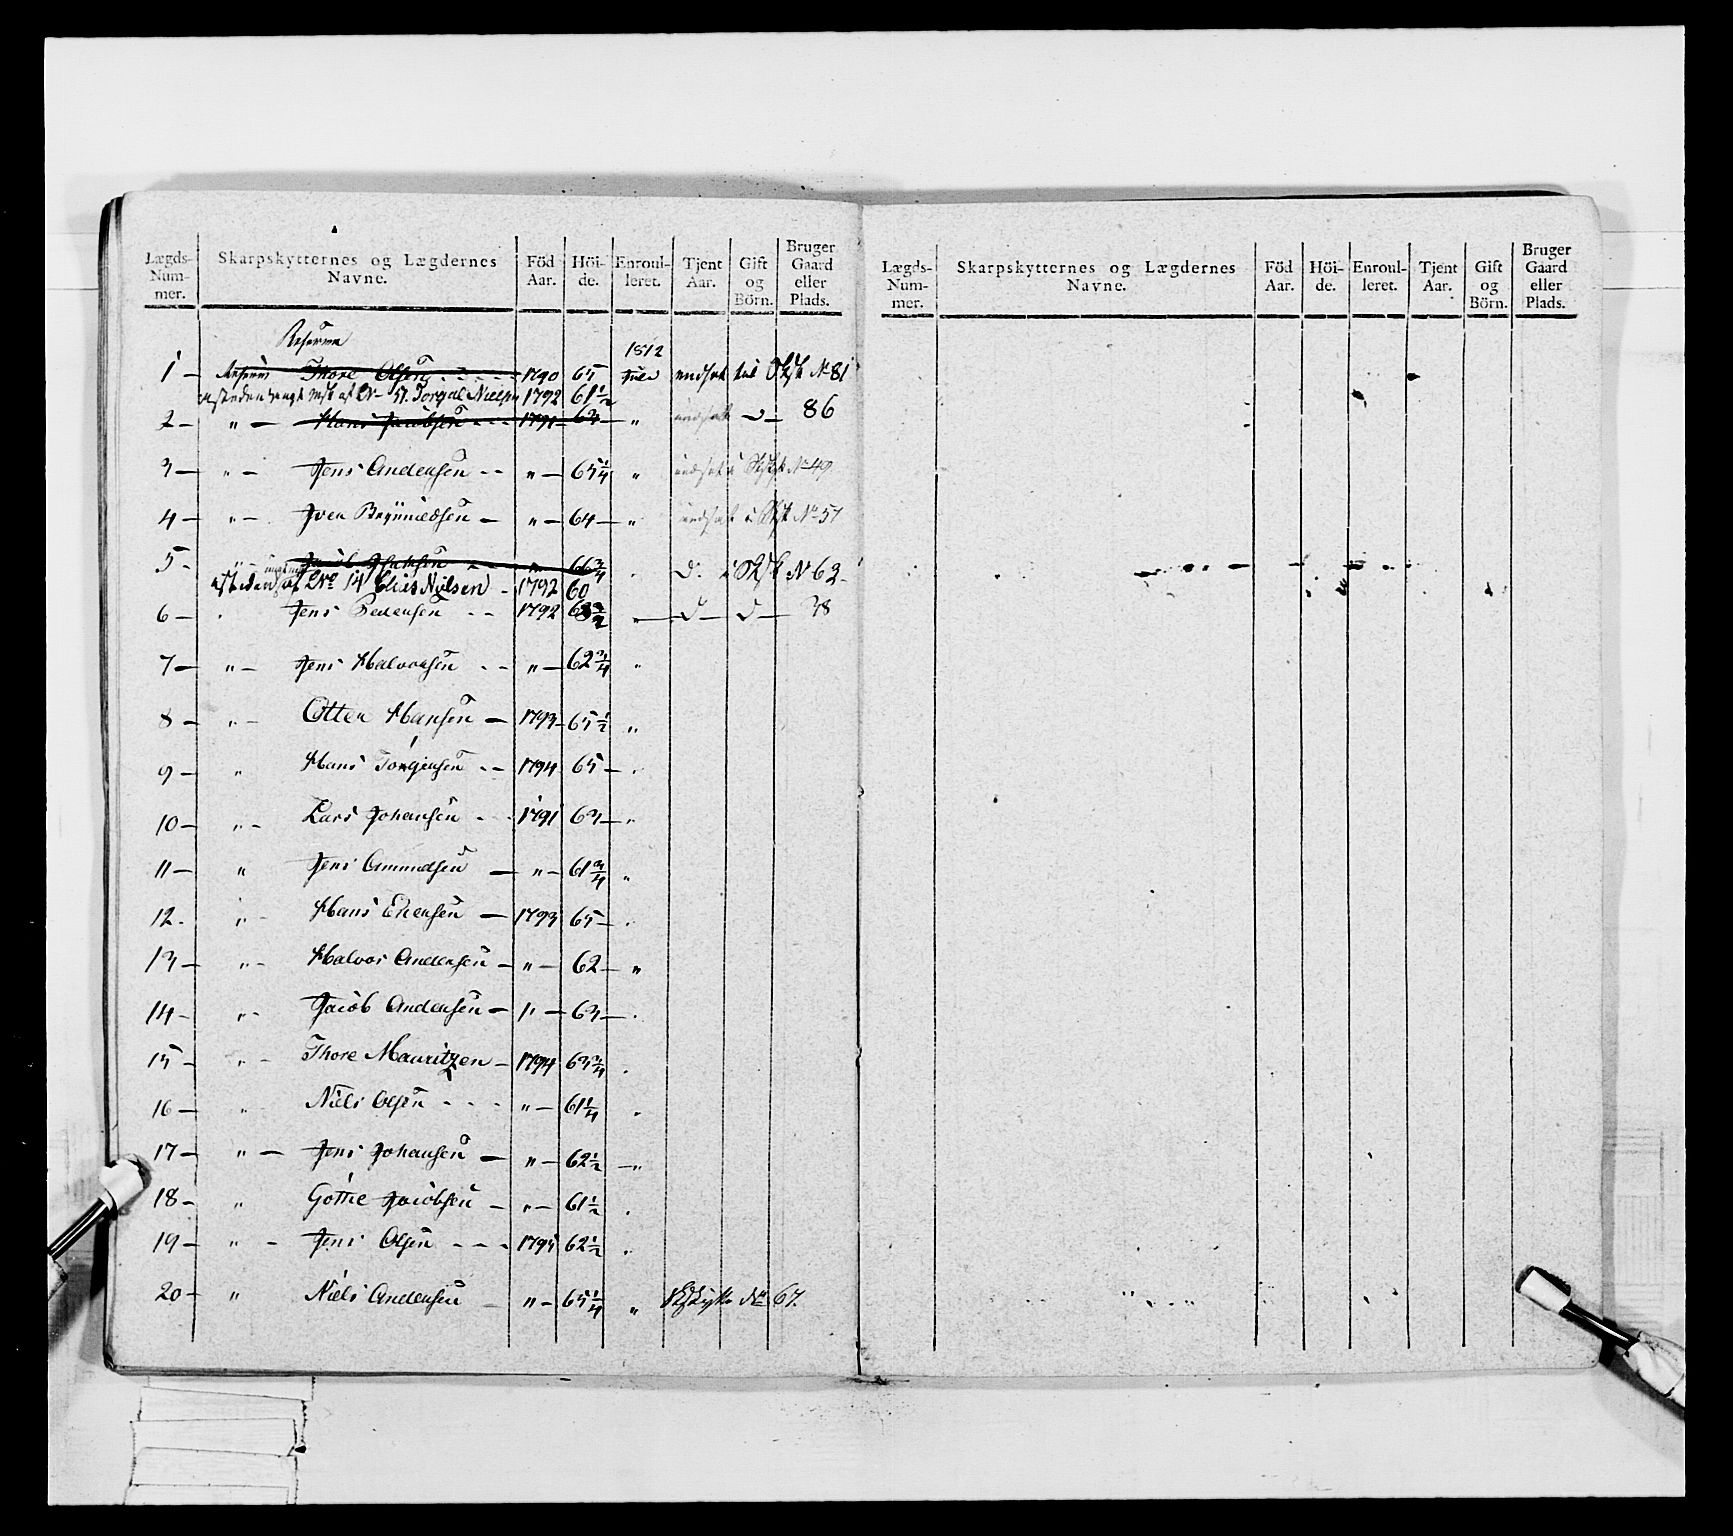 Lægds-Num-mer. Skarpskytternes og Lægdernes Navne. Föd Aar. Höi-de. Enroul-leret. Tjent Aar. Gift og Börn. Bruger Gaard eller Plads.
Reserve
1812
1 Thore Olsen 1790 65 indsat til No 81
No 51. Torgal Nielsen 1792 61 1/2
2 " Hans Jacobsen 1791 63 " indsat 86
3 " Jens Andersen " 65 1/4 " indsat i No 49
4 " Iver " 64 " indsat i No 57
5 " 66 3/4 i No 62
No 14 Elias Nilsen 1792 60
6 Jens Pedersen 1792 " D D 38
7 " Jens Halvorsen " 62 3/4 "
8 " Otter Hansen 1793 65 1/2 "
9 " Hans Törgersen 1794 65 "
10 " Lars Johansen 1791 63 "
11 " Jens Amundsen " 61 3/4 "
12 " Hans Evensen 1793 65 "
13 " Halvor Andersen " 62 "
14 " Jacob Andersen " 63 "
15 " Thore Mauritzen 1794 63 3/4 "
16 " Niels Olsen " 61 1/4 "
17 " Jens Johansen " 62 1/2 "
18 " Gothe Jacobsen " 61 1/2 "
19 " Jens Olsen 1795 62 1/2 "
20 " Niels Andersen " 65 1/4 " No 67.
Lægds-Num-mer. Skarpskytternes og Lægdernes Navne. Föd Aar. Höi-de. Enroul-leret. Tjent Aar. Gift og Börn. Bruger Gaard eller Plads.